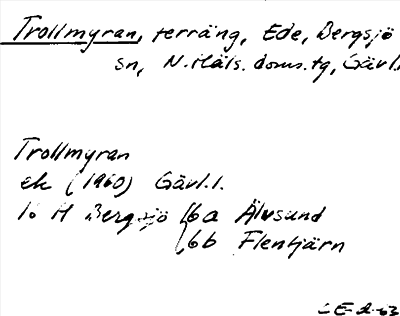 Trollmyran, terräng, Ede, Bergsjö
sn, N. Häls. doms. tg, Gävl.
Trollmyran
ek (1960) Gävl. l.
16 H Bergsjö 6a Älvsund
6b Flentjärn
CE-2-63